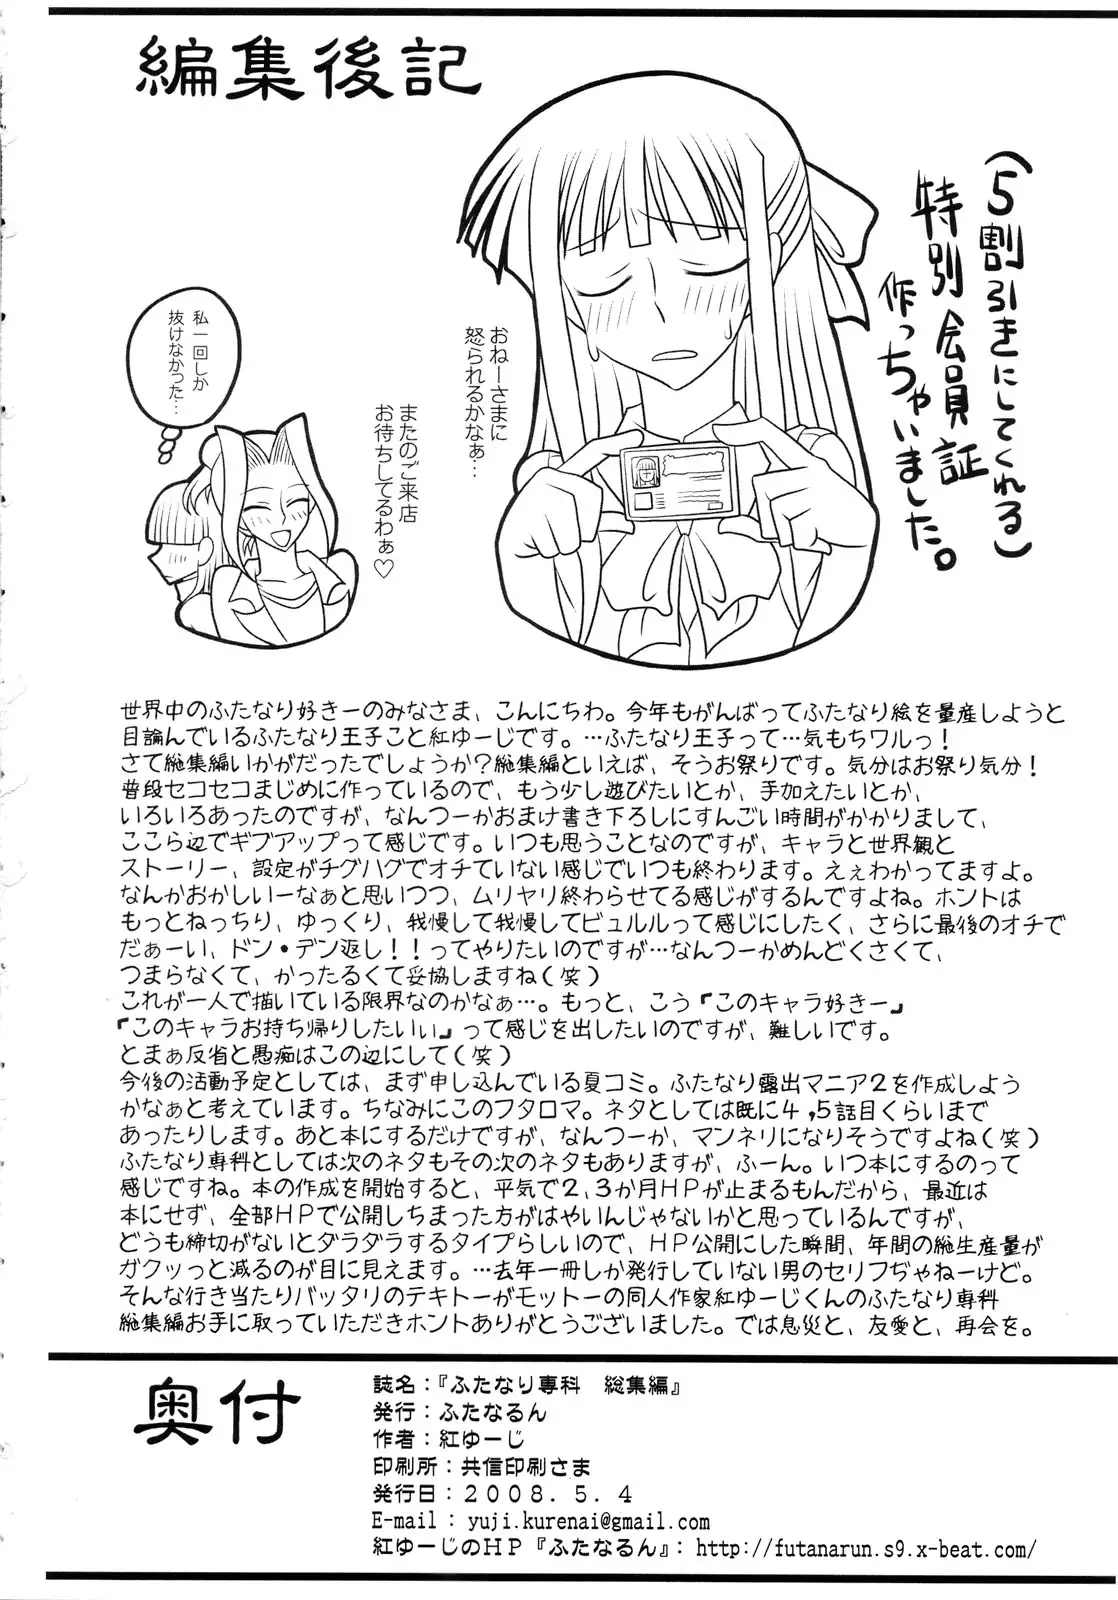 編集後記
(5割引きにしてくれる)
特別会員証
作っちゃいました。
おねーさまに
怒られるかなぁ…
またのご来店
お待ちしてるわぁ♡
私一回しか
抜けなかった…
世界中のふたなり好きーのみなさま、こんにちわ。今年もがんばってふたなり絵を量産しようと
目論んでいるふたなり王子こと紅ゆーじです。…ふたなり王子って…気もちワルっ!
さて総集編いかがだったでしょうか?総集編といえば、そうお祭りです。気分はお祭り気分!
普段セコセコまじめに作っているので、もう少し遊びたいとか、手加えたいとか、
いろいろあったのですが、なんつーかおまけ書き下ろしにすんごい時間がかかりまして、
ここら辺でギブアップって感じです。いつも思うことなのですが、キャラと世界観と
ストーリー、設定がチグハグでオチていない感じでいつも終わります。えぇわかってますよ。
なんかおかしいーなぁと思いつつ、ムリヤリ終わらせてる感じがするんですよね。ホントは
もっとねっちり、ゆっくり、我慢して我慢してビュルルって感じにしたく、さらに最後のオチで
だぁーい、ドン・デン返し!!ってやりたいのですが…なんつーかめんどくさくて、
つまらなくて、かったるくて妥協しますね(笑)
これが一人で描いている限界なのかなぁ…。もっと、こう『このキャラ好きー』
『このキャラお持ち帰りしたいぃ』って感じを出したいのですが、難しいです。
とまぁ反省と愚痴はこの辺にして(笑)
今後の活動予定としては、まず申し込んでいる夏コミ。ふたなり露出マニア2を作成しよう
かなぁと考えています。ちなみにこのフタロマ。ネタとしては既に4,5話目くらいまで
あったりします。あと本にするだけですが、なんつーか、マンネリになりそうですよね(笑)
ふたなり専科としては次のネタもその次のネタもありますが、ふーん。いつ本にするのって
感じですね。本の作成を開始すると、平気で2,3か月HPが止まるもんだから、最近は
本にせず、全部HPで公開しちまった方がはやいんじゃないかと思っているんですが、
どうも締切がないとダラダラするタイプらしいので、HP公開にした瞬間、年間の総生産量が
ガクッっと減るのが目に見えます。…去年一冊しか発行していない男のセリフぢゃねーけど。
そんな行き当たりバッタリのテキトーがモットーの同人作家紅ゆーじくんのふたなり専科
総集編お手に取っていただきホントありがとうございました。では息災と、友愛と、再会を。
奥付
誌名:『ふたなり専科 総集編』
発行:ふたなるん
作者:紅ゆーじ
印刷所:共信印刷さま
発行日:2008.5.4
E-mail : yuji.kurenai@gmail.com
紅ゆーじのHP『ふたなるん』: http://futanarun.s9.x-beat.com/